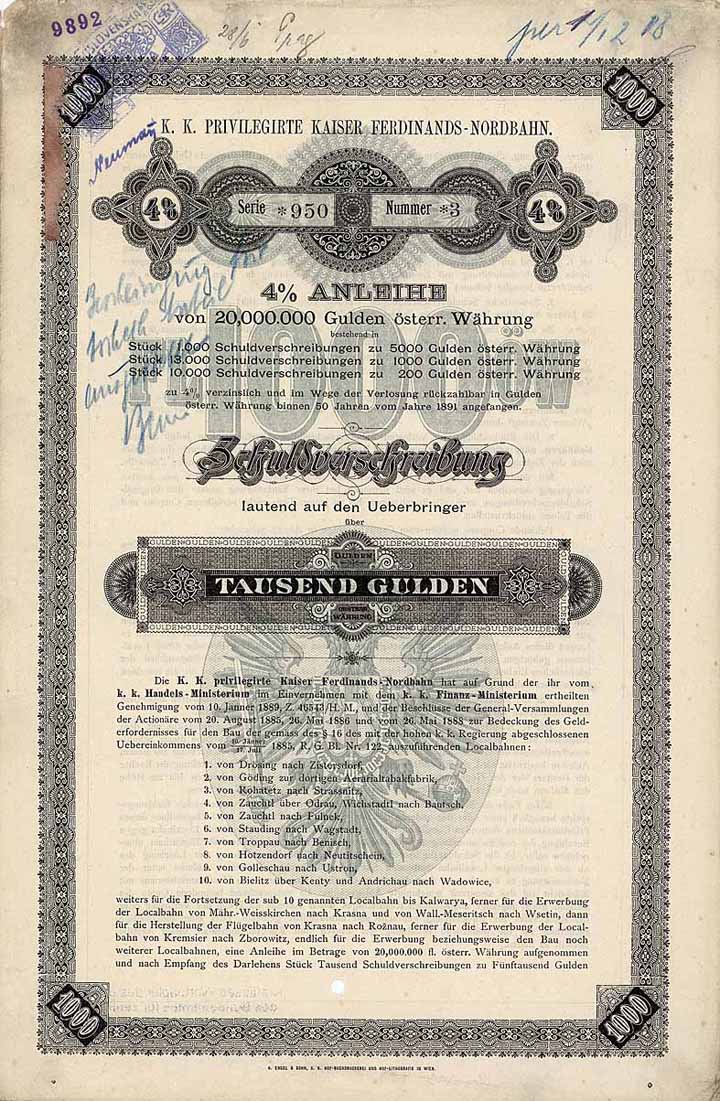 9892
28/6 Prag
per 1/12 18
1000
1000
Neuman
K. K. PRIVILEGIRTE KAISER FERDINANDS-NORDBAHN.
4% Serie *950 Nummer *3 4%
4% ANLEIHE
von 20,000.000 Gulden österr. Währung
bestehend in
Stück 1.000 Schuldverschreibungen zu 5000 Gulden österr. Währung
Stück 13.000 Schuldverschreibungen zu 1000 Gulden österr. Währung
Stück 10.000 Schuldverschreibungen zu 200 Gulden österr. Währung
zu 4% verzinslich und im Wege der Verlosung rückzahlbar in Gulden
österr. Währung binnen 50 Jahren vom Jahre 1891 angefangen.
Fl 1000 ÖW
Schuldverschreibung
lautend auf den Ueberbringer
über
GULDEN
TAUSEND GULDEN
OESTERR.
WÄHRUNG
Die K. K. privilegirte Kaiser Ferdinands-Nordbahn hat auf Grund der ihr vom
k. k. Handels-Ministerium im Einvernehmen mit dem k. k. Finanz-Ministerium ertheilten
Genehmigung vom 10. Jänner 1889, Z. 46543/H. M., und der Beschlüsse der General-Versammlungen
der Actionäre vom 20. August 1885, 26. Mai 1886 und vom 26. Mai 1888 zur Bedeckung des Geld-
erfordernisses für den Bau der gemäss der § 16 des mit der hohen k. k. Regierung abgeschlossenen
Uebereinkommens vom 10. Jänner / 17. Juli 1885, R. G. Bl. Nr. 122, auszuführenden Localbahnen:
1. von Drösing nach Zistersdorf,
2. von Göding zur dortigen Aerarialtabakfabrik,
3. von Rohatetz nach Strassnitz,
4. von Zauchtl über Odrau, Wichstadtl nach Bautsch,
5. von Zauchtl nach Fulnek,
6. von Stauding nach Wagstadt,
7. von Troppau nach Benisch,
8. von Hotzendorf nach Neutitschein,
9. von Golleschau nach Ustron,
10. von Bielitz über Kenty und Andrichau nach Wadowice,
weiters für die Fortsetzung der sub 10 genannten Localbahn bis Kalwarya, ferner für die Erwerbung
der Localbahn von Mähr.-Weisskirchen nach Krasna und von Wall.-Meseritsch nach Wsetin, dann
für die Herstellung der Flügelbahn von Krasna nach Rožnau, ferner für die Erwerbung der Local-
bahn von Kremsier nach Zborowitz, endlich für die Erwerbung beziehungsweise den Bau noch
weiterer Localbahnen, eine Anleihe im Betrage von 20,000.000 fl. österr. Währung aufgenommen
und nach Empfang des Darlehens Stück Tausend Schuldverschreibungen zu Fünftausend Gulden
1000
1000
H. ENGEL & SOHN, K. K. HOF-BUCHDRUCKEREI UND HOF-LITHOGRAFIE IN WIEN.